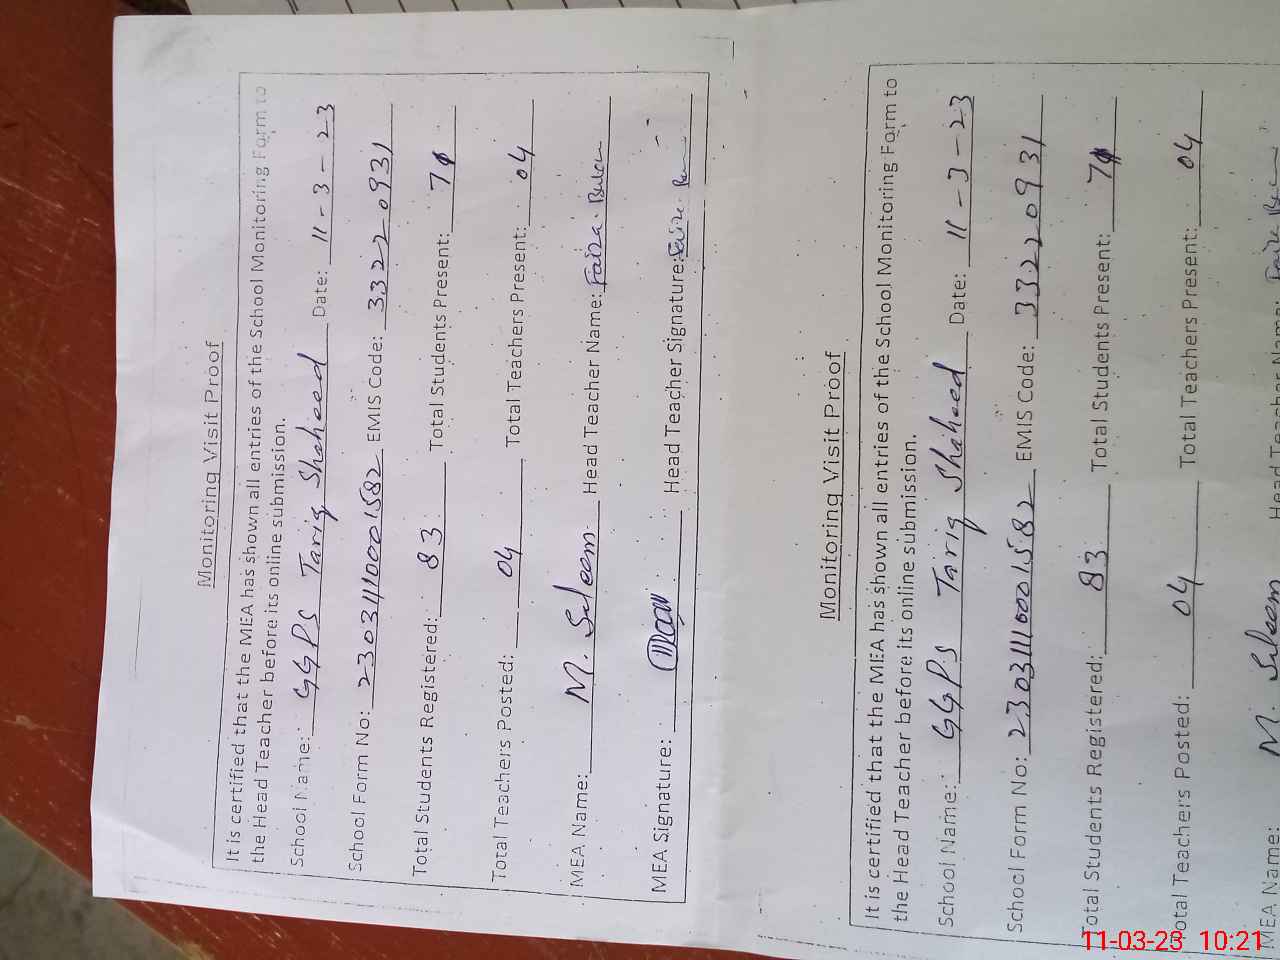 Monitoring Visit Proof
It is certified that the MEA has shown all entries of the School Monitoring Form to
the Head Teacher before its online submission.
School Name: GGPS Tariq Shaheed Date: 11-3-23
School Form No: 23031110001582 EMIS Code: 33220931
Total Students Registered: 83 Total Students Present: 71
Total Teachers Posted: 04 Total Teachers Present: 04
MEA Name: M. Saleem Head Teacher Name: Faiza
MEA Signature: Head Teacher Signature: Faiza
Monitoring Visit Proof
It is certified that the MEA has shown all entries of the School Monitoring Form to
the Head Teacher before its online submission.
School Name: GGPS Tariq Shaheed Date: 11-3-23
School Form No: 23031110001582 EMIS Code: 33220931
Total Students Registered: 83 Total Students Present: 71
Total Teachers Posted: 04 Total Teachers Present: 04
MEA Name: M. Saleem Head Teacher Name: Faiza
11-03-23 10:21